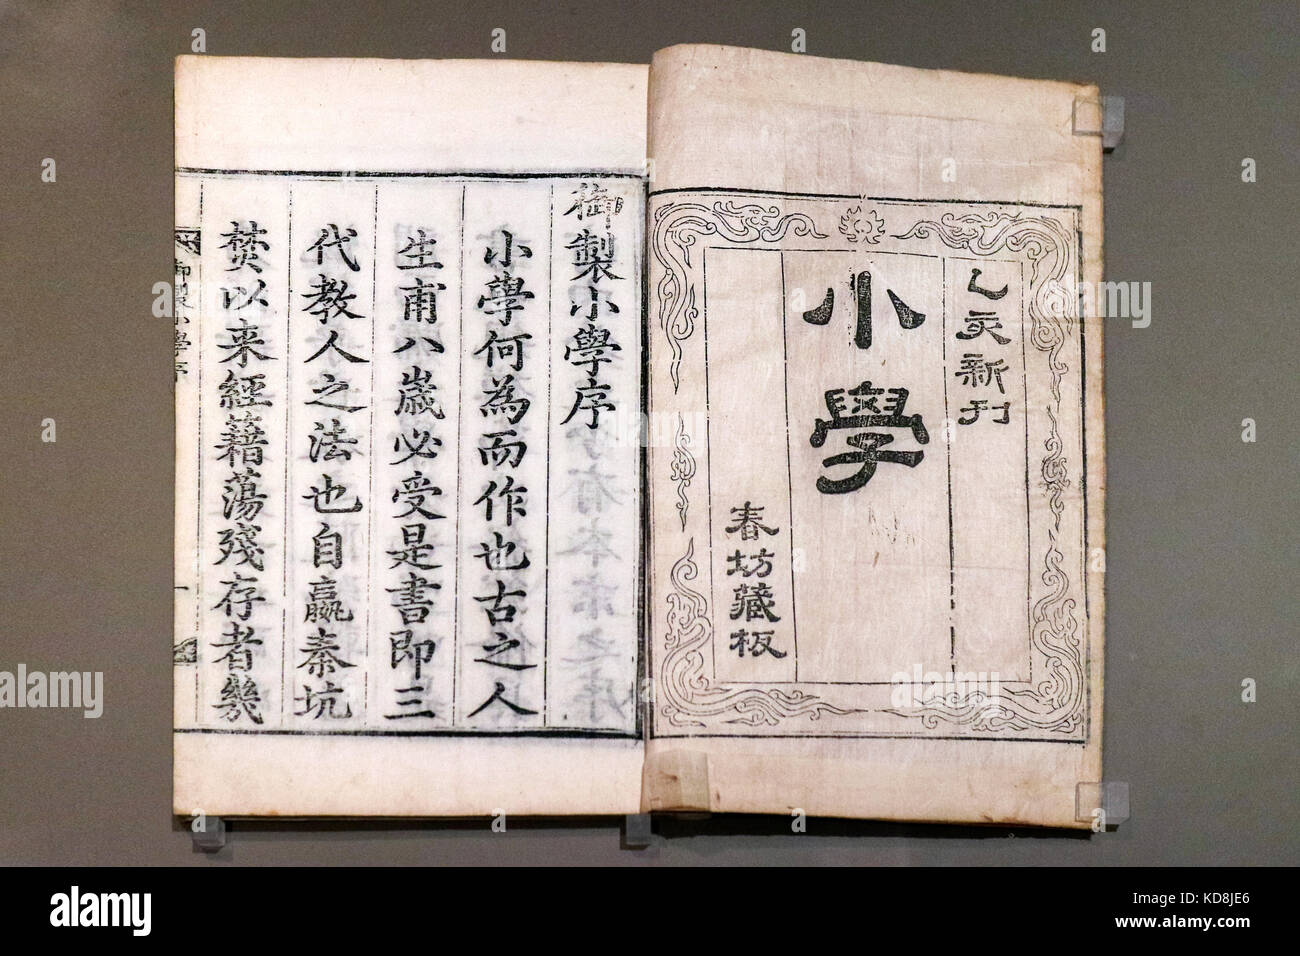 乙亥新刊
小學
春坊藏板
御製小學序
小學何為而作也古之人
生甫八歲必受是書即三
代教人之法也自嬴秦坑
焚以来經籍蕩殘存者幾
御製小學序
一
alamy
Image ID: KD8JE6
www.alamy.com